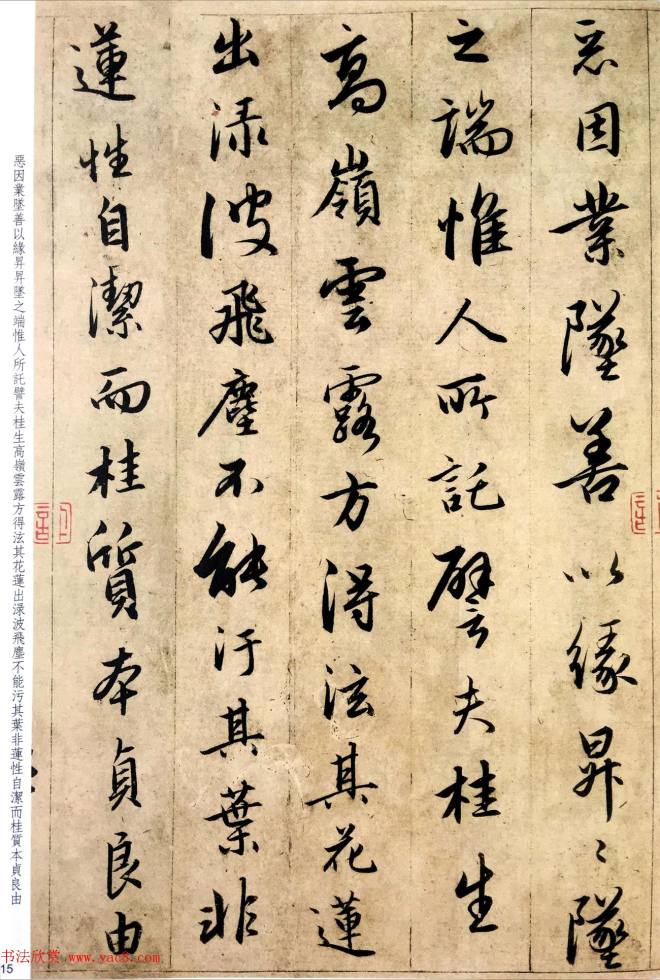 惡因業墜善以緣昇〻墜
之端惟人所託譬夫桂生
高嶺雲露方得泫其花蓮
出渌波飛塵不能汙其葉非
蓮性自潔而桂質本貞良由
惡因業墜善以緣昇昇墜之端惟人所託譬夫桂生高嶺雲露方得泫其花蓮出渌波飛塵不能污其葉非蓮性自潔而桂質本貞良由
书法欣赏 www.yac8.com
15